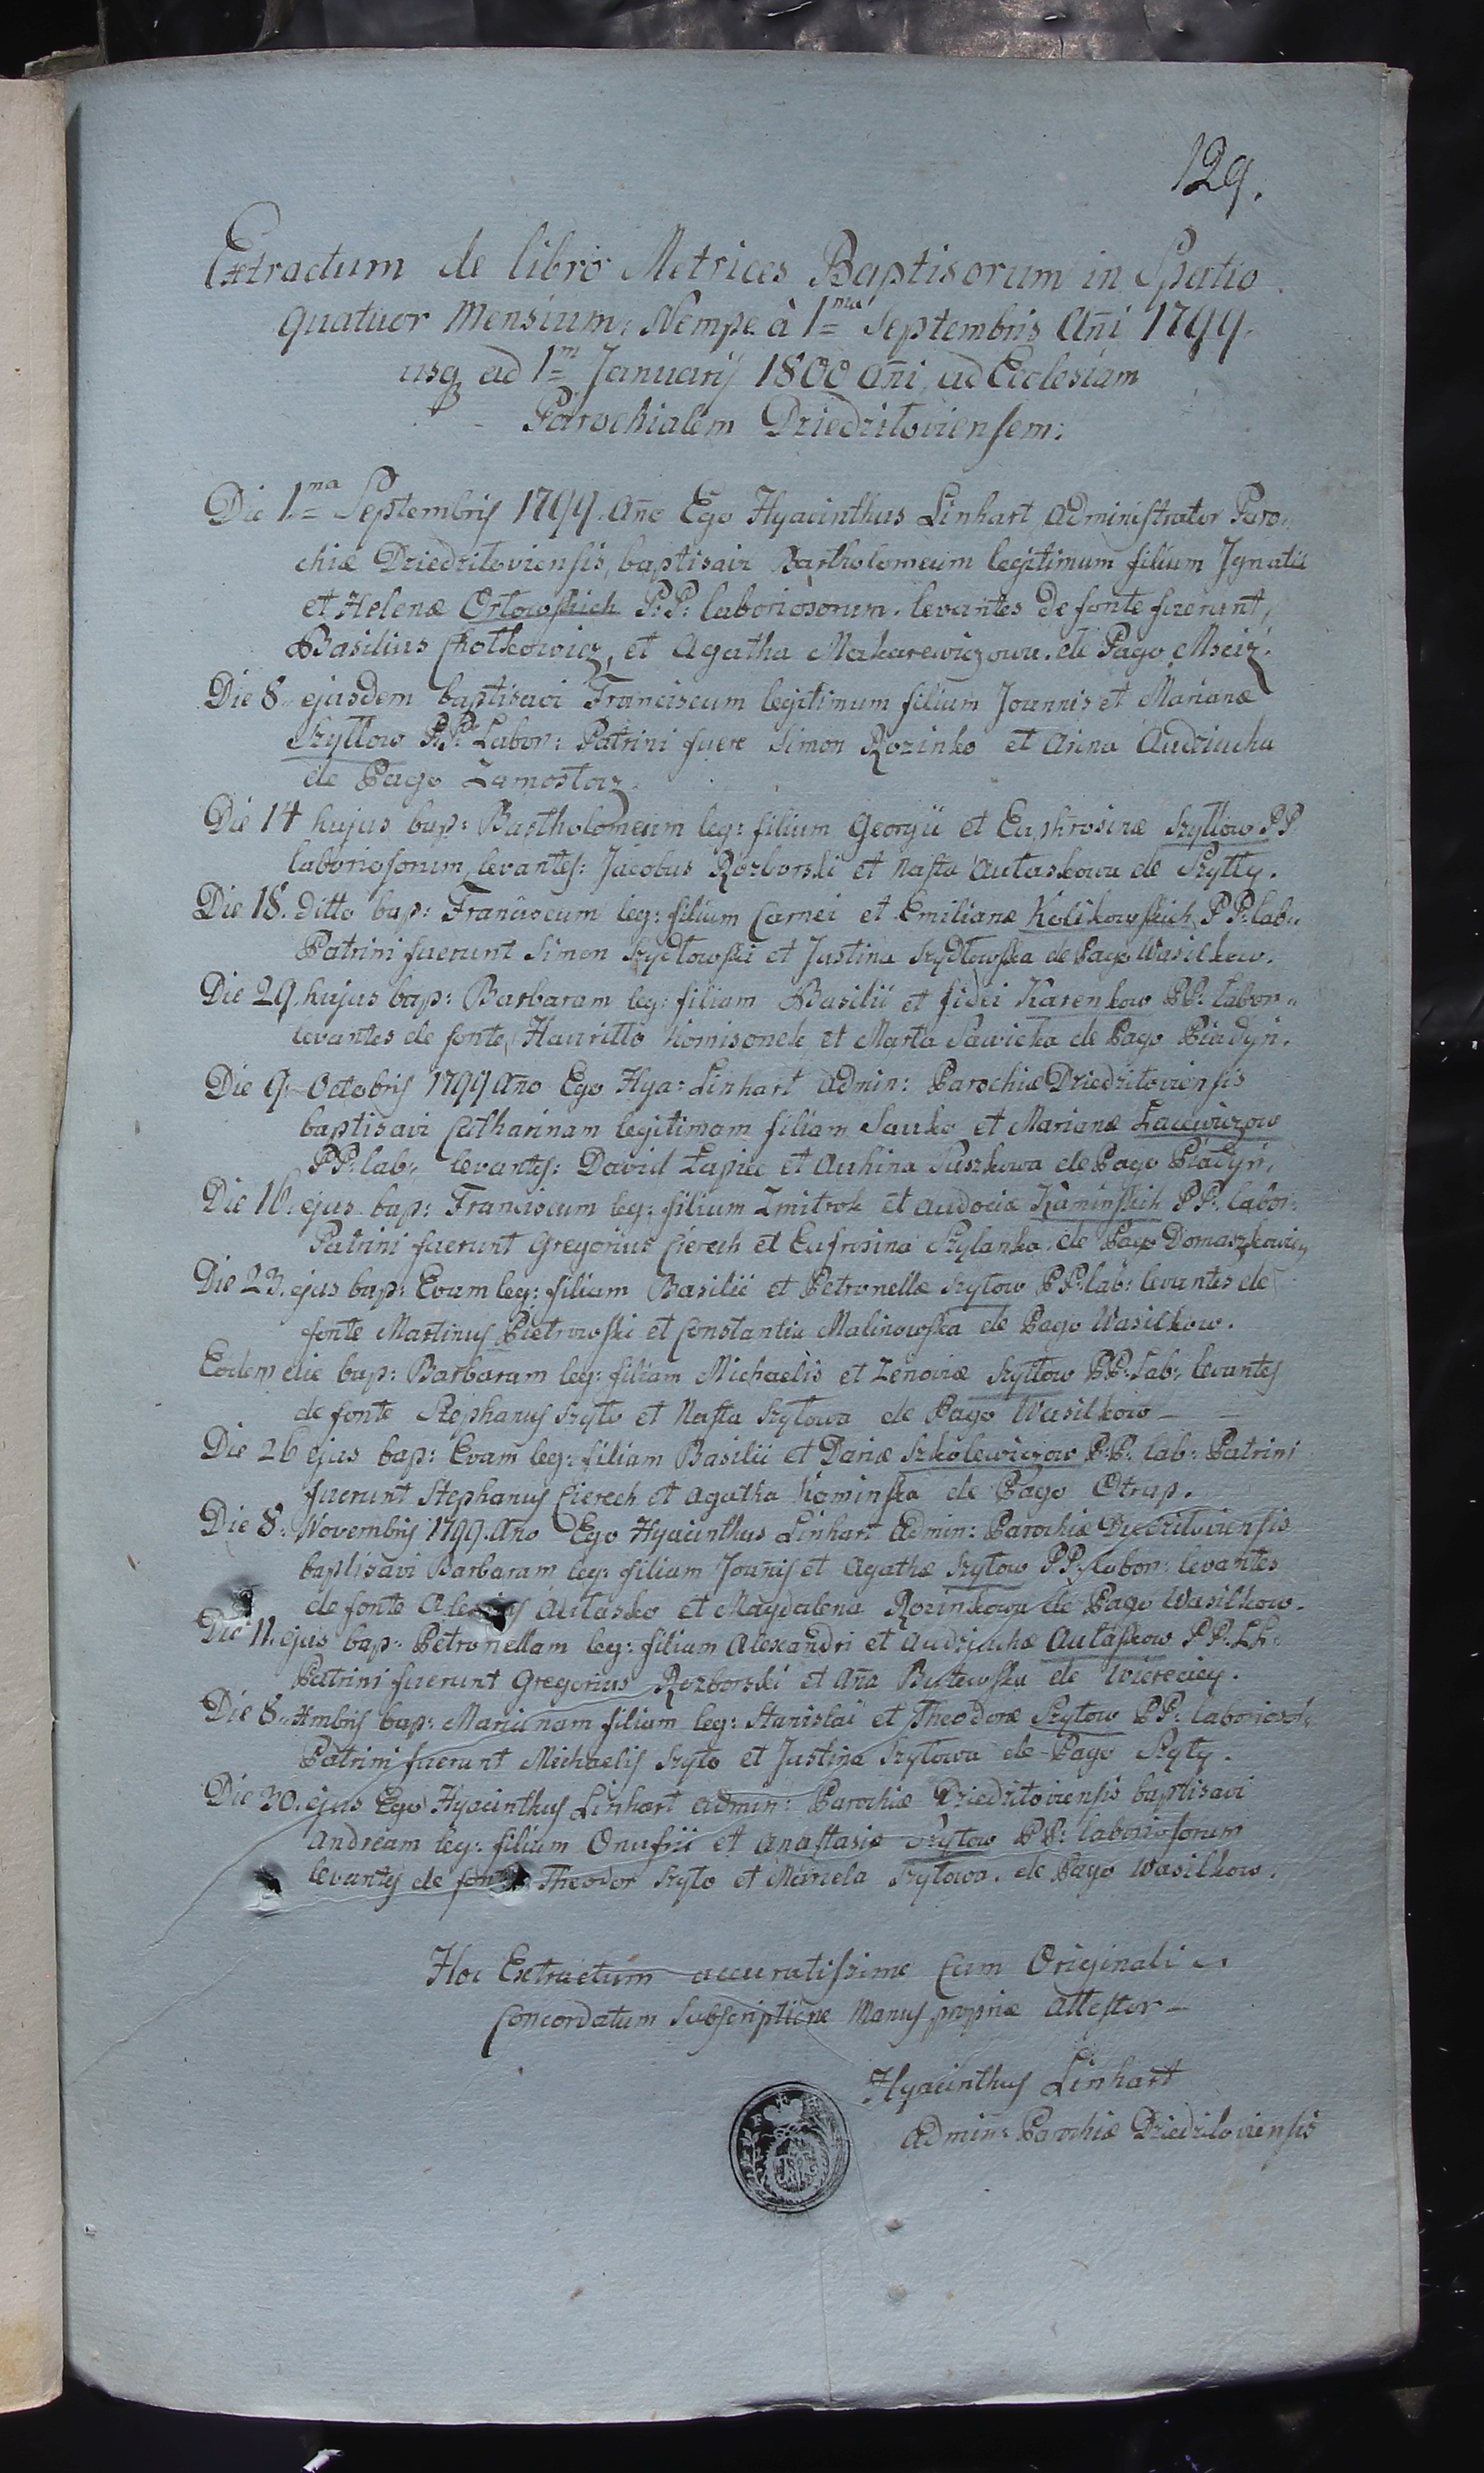 129.
Extractum de libro Metrices Baptisorum in Spatio
quatuor Mensium: Nempe à 1ma Septembris Añi 1799.
usq ad 1m Januarij 1800 añi ad Ecclesiam
Parochialem Dziedzitoviensem:
Die 1ma Septembris 1799. Año Ego Hyacinthus Linhart Administrator Paro-
chiæ Dziedziloviensis, baptisavi Bartholomeum legitimum filium Ignatii
et Helenæ Orłowskich P:P: laboriosorum. levantes de fonte fuerunt,
Basilius Chotkowicz, et Agatha Makarewiczowa. de Pago Msciż.
Die 8. ejusdem baptisavi Franciscum legitimum filium Joannis et Marianæ
Szyłłow P:P: Labor: Patrini fuere Simon Rozinko et Anna Audziucha
de Pago Zamostocz.
Die 14 hujus bap: Bartholomeum leg: filium Georgii et Euphrosinæ Szyłłow PP
laboriosorum, levantes: Jacobus Rozborski et Nasta Autaskowa de Szyłły.
Die 18. ditto bap: Franciscum leg: filium Carnei et Emilianæ Kolikowskich PP: lab:
Patrini fuerunt Simon Szydłowski et Justina Szydłowska de Pago Wasilkow.
Die 29. hujus bap: Barbaram leg: filiam Basilii et fidei Karenkow PP: labor:
levantes de fonte, Hauriłło Komisonek et Marta Sawicka de Pago Piadyń.
Die 9. Octobris 1799 Año Ego Hya: Linhart Admin: Parochiæ Dziedzitoviensis
baptisavi Catharinam legitimam filiam Sauko et Marianæ Łacewiczow
PP: lab: levantes: David Łapiec et Auhina Suszkowa de Pago Piadyń.
Die 16. ejus bap: Franciscum leg: filium Zmitrok et Audociæ Kaminskich PP: labor:
Patrini fuerunt Gregorius Cierech et Eufrosina Szylanka. de Pago Domaszkowicz
Die 23. ejus bap: Evam leg: filiam Basilii et Petronellæ Szytow PP: lab: levantes de
fonte Martinus Pietrowski et Constantia Malinowska de Pago Wasilkow.
Eodem die bap: Barbaram leg: filiam Michaelis et Zenoviæ Szyłow PP: Lab: levantes
de fonte Stephanus Szyło et Nasta Szyłowa de Pago Wasilkow
Die 26 ejus bap: Evam leg: filiam Basilii et Dariæ Szkolewiczow P:P: lab: Patrini
fuerunt Stephanus Cierech et Agatha Kaminska de Pago Otrup.
Die 8. Novembris 1799. Año Ego Hyacinthus Linhart Admin: Parochiæ Dziedzitoviensis
baptisavi Barbaram leg: filiam Joañis et Agathæ Szyłow PP: labor: levantes
de fonte Autasko et Magdalena Rozinkowa de Pago Wasilkow.
Die 11. ejus bap: Petronellam leg: filiam Alexandri et Audziuchæ Autaskow PP: Lb:
Patrini fuerunt Gregorius Rozborski et Aña de Wiereciey.
Die 8. Xmbris bap: Mariannam filiam leg: Stanislai et Theodoræ Szyłow PP: laborioso:
Patrini fuerunt Michaelis Szyło et Justina Szyłowa de Pago Szyły.
Die 30. ejus Ego Hyacinthus Linhart Admin: Parochiæ Dziedzitoviensis baptisavi
Andream leg: filium Onufrii et Anastasiæ Szyłow PP: laboriosorum
levantes de fonte Theodor Szyło et Marcela Szyłowa. de Pago Wasilkow.
Hoc Extractum accuratissime Cum Originali
Concordatum Subscriptione Manus propriæ Attestor
Hyacinthus Linhart
Admin: Parochiæ Dziedziloviensis